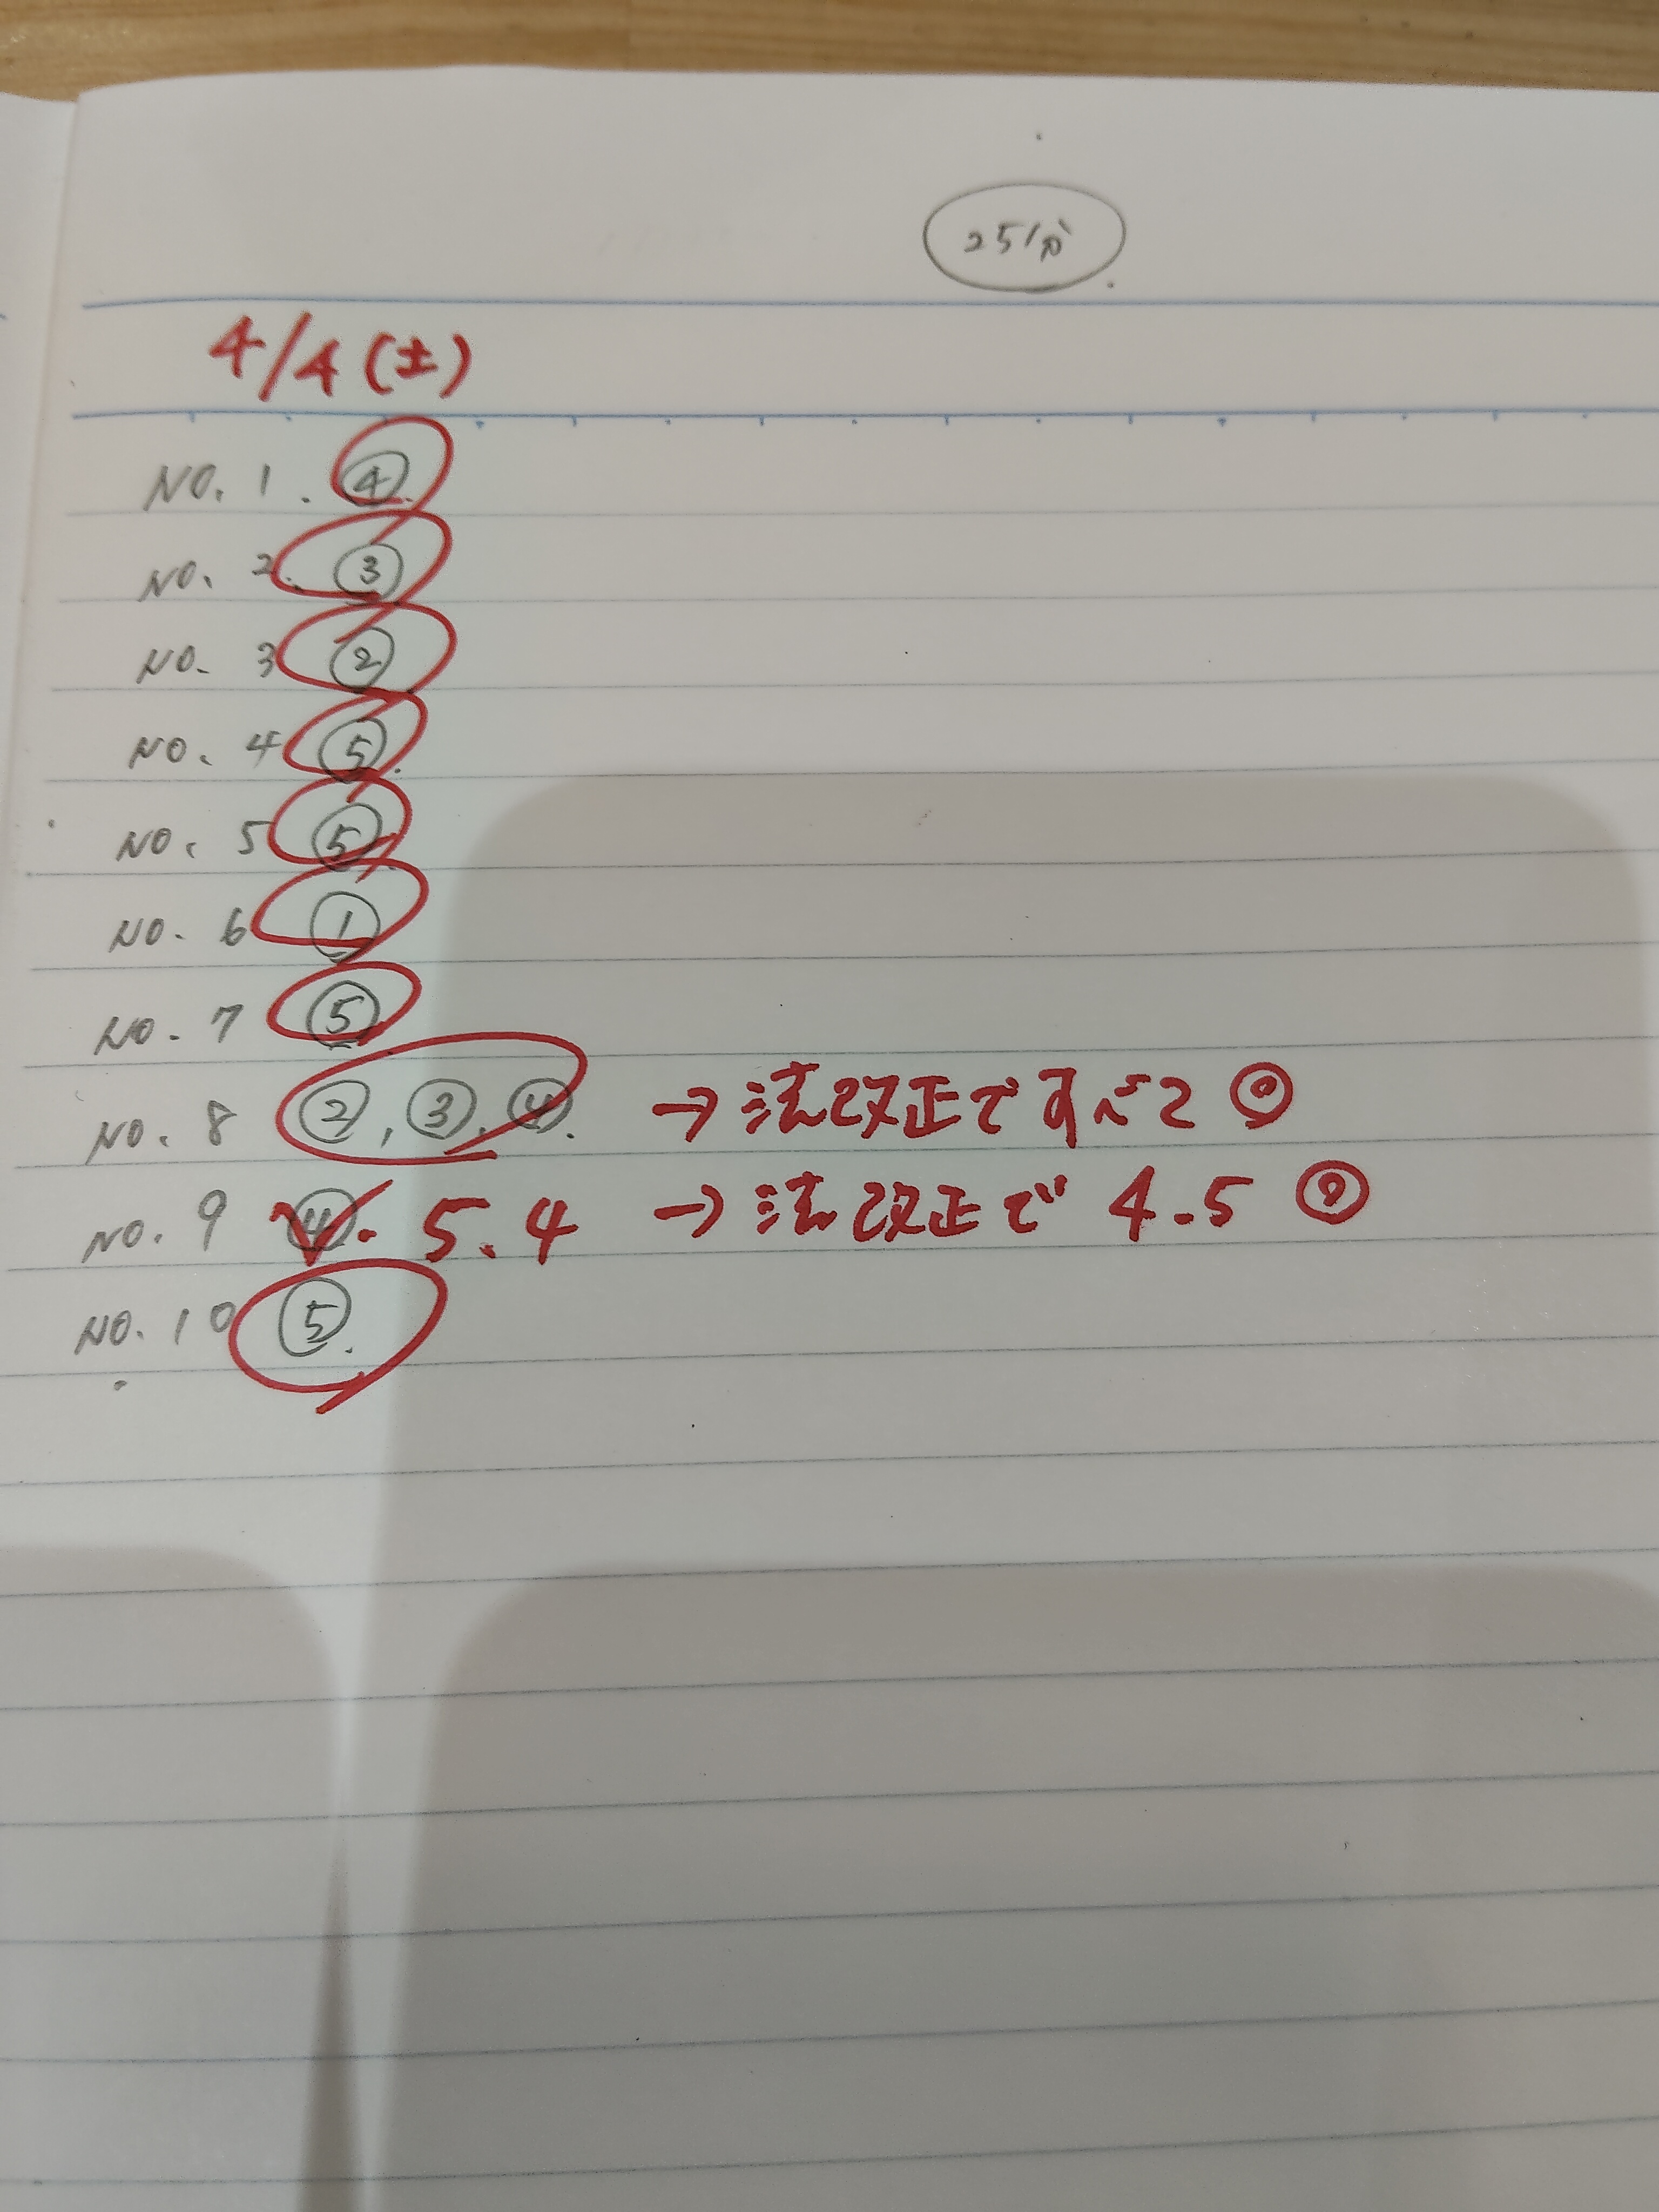 25分
4/4(土)
NO. 1. ④
NO. 2. ③
NO. 3 ②
NO. 4 ⑤.
NO. 5 ⑤
NO. 6 ①
NO. 7 ⑤
NO. 8 ②, ③, ④. → 法改正ですべて ◎
NO. 9 ④. 5.4 → 法改正で 4.5 ◎
NO. 10 ⑤.